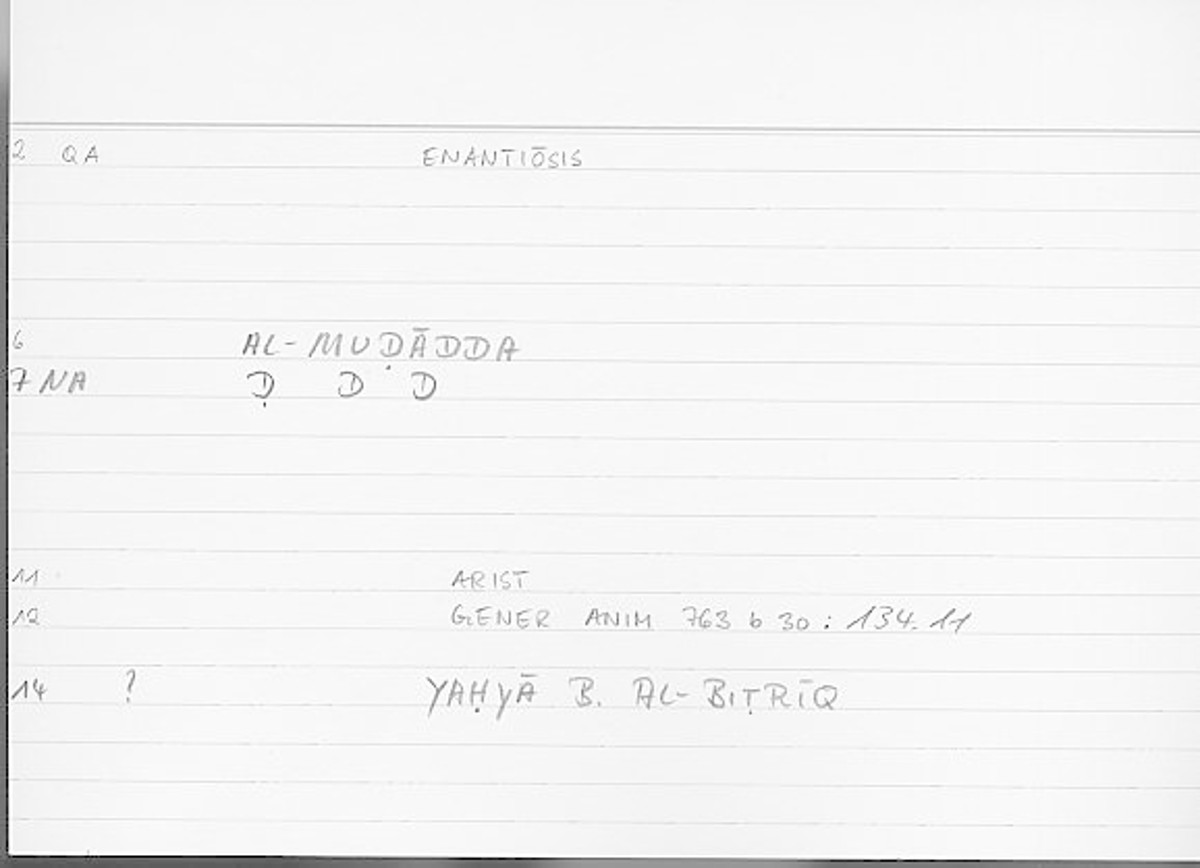 2 QA ENANTIŌSIS
6 AL-MUḌĀDDA
7 NA Ḍ D D
11 ARIST
12 GENER ANIM 763 b 30 : 134.11
14 ? YAḤYĀ B. AL-BIṬRĪQ